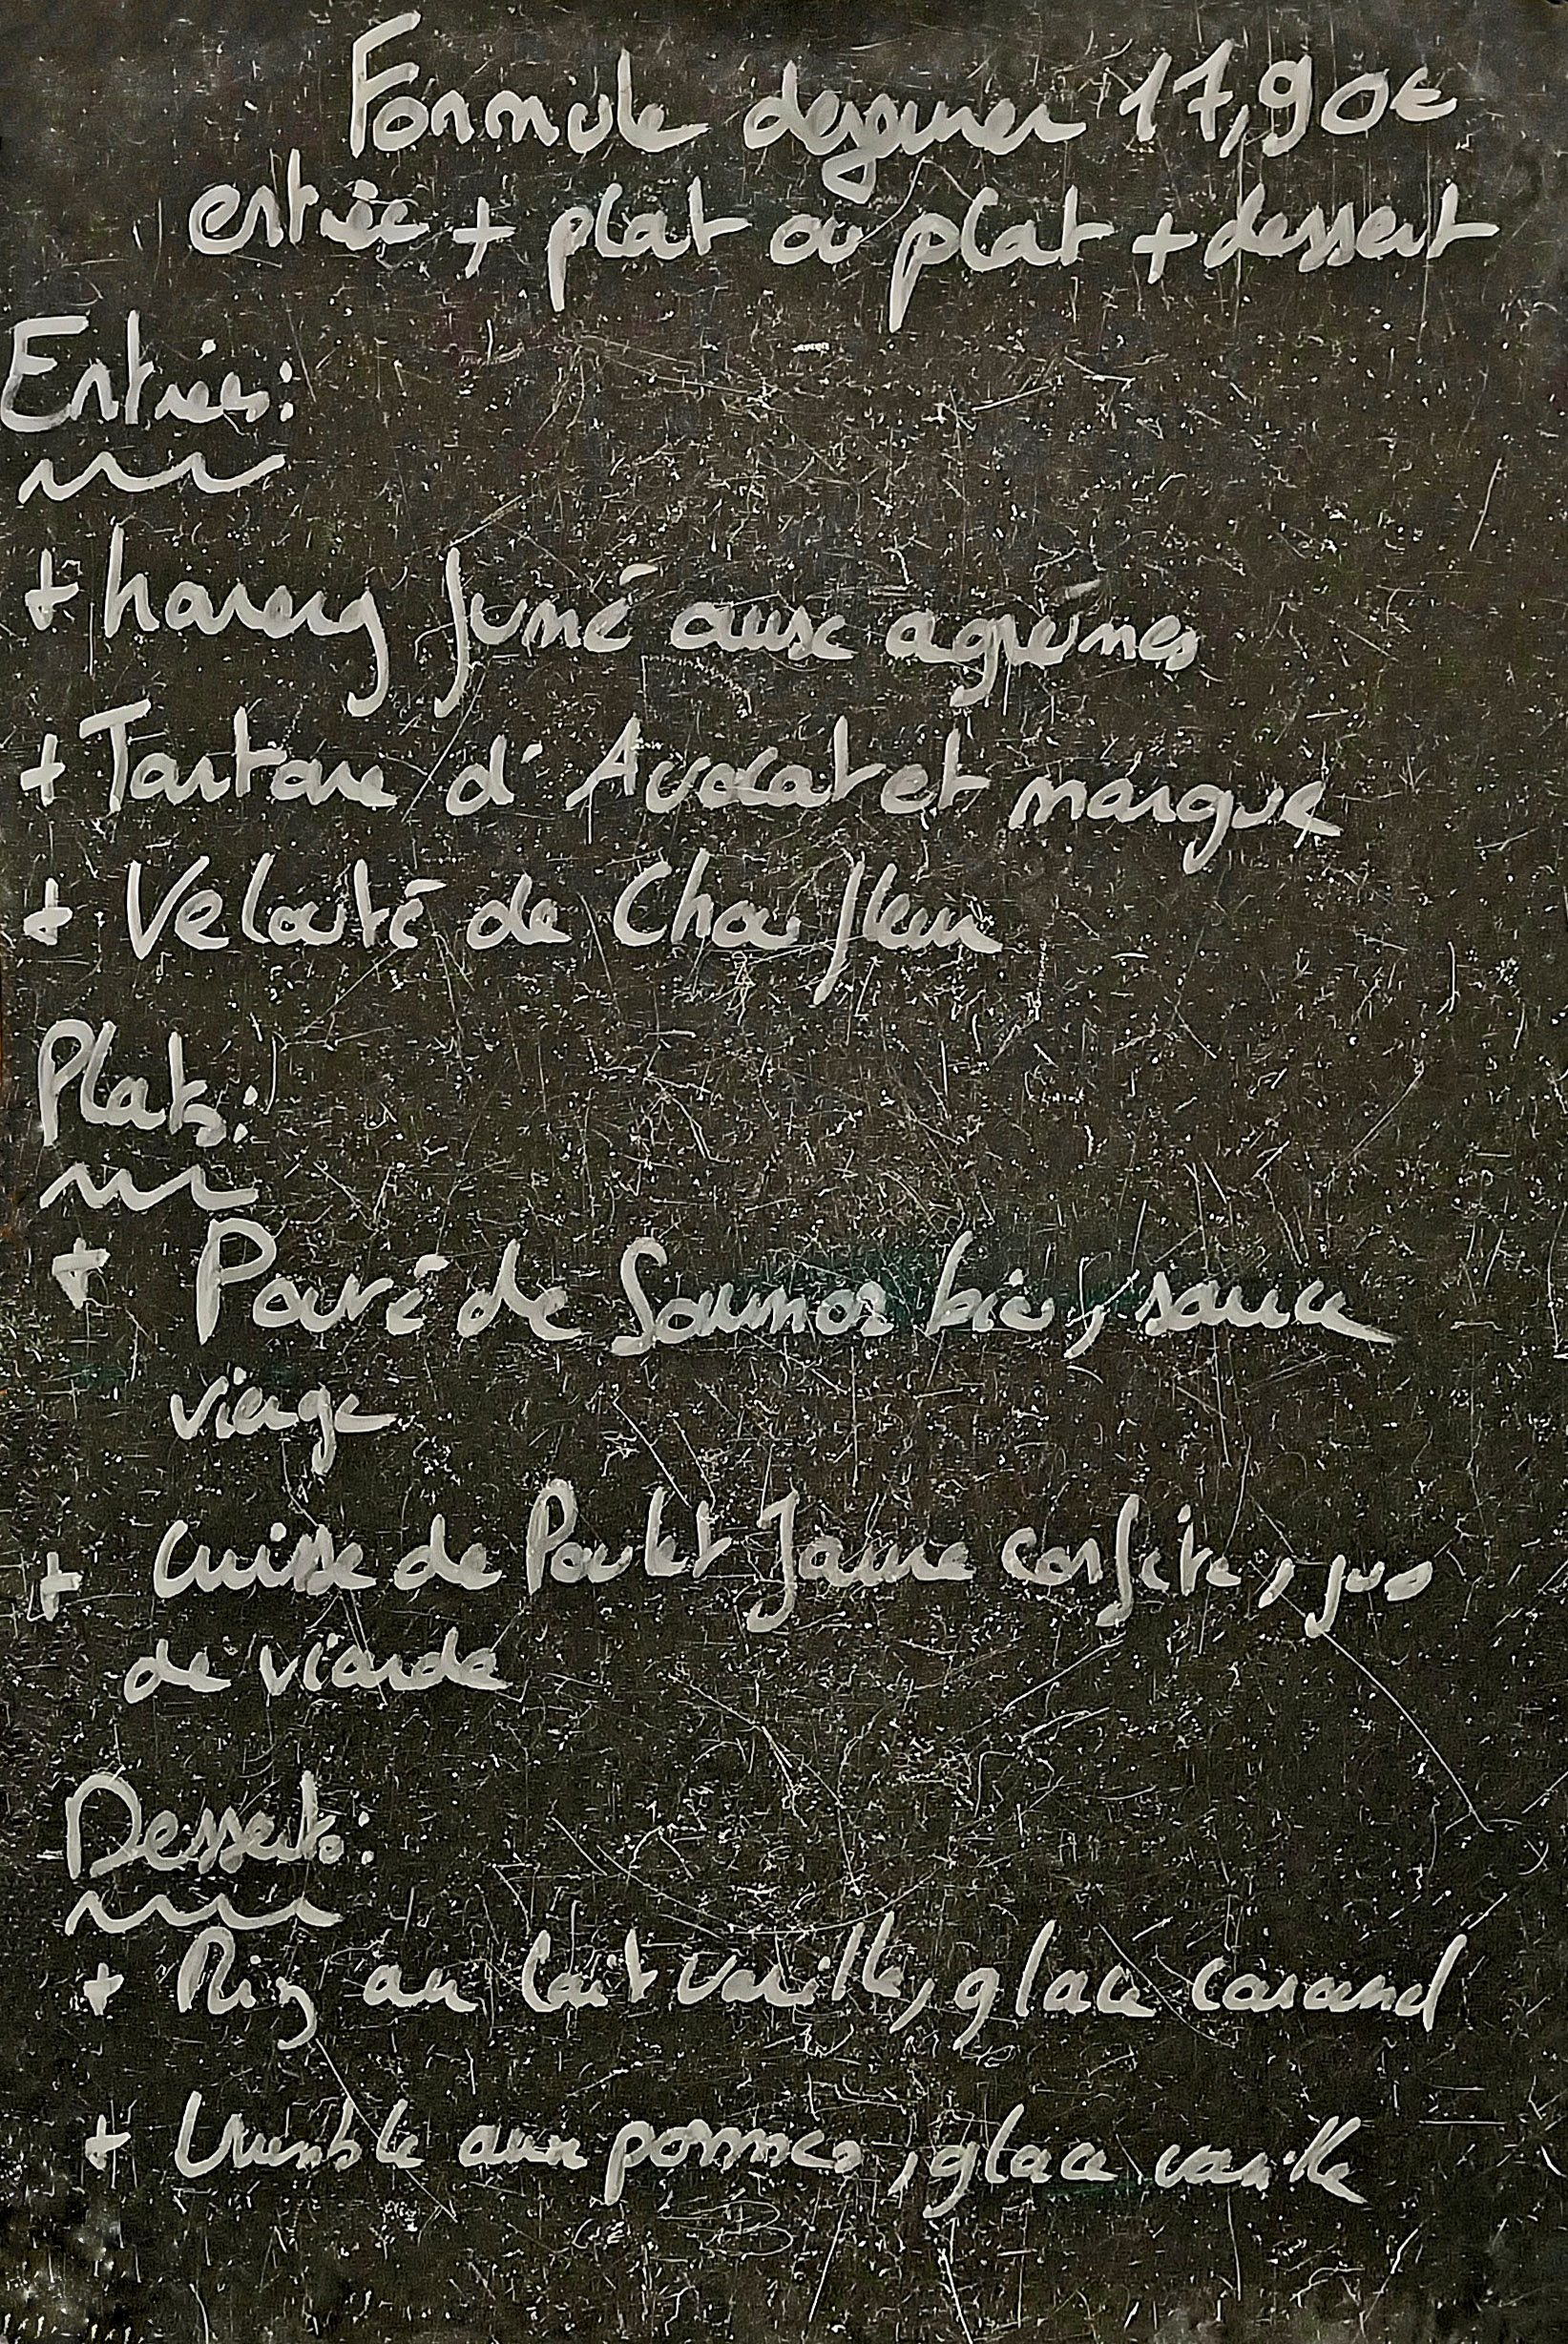 Formule dejeuner 17,90€
entrée + plat ou plat + dessert
Entrées:
+ hareng fumé aux agrumes
+ Tartare d'Avocat et mangue
+ Velouté de Chou fleur
Plats:
+ Pavé de Saumon bio, sauce
vierge
+ Cuisse de Poulet Jaune confite, jus
de viande
Desserts:
+ Riz au lait vanille, glace caramel
+ Crumble aux pommes, glace vanille